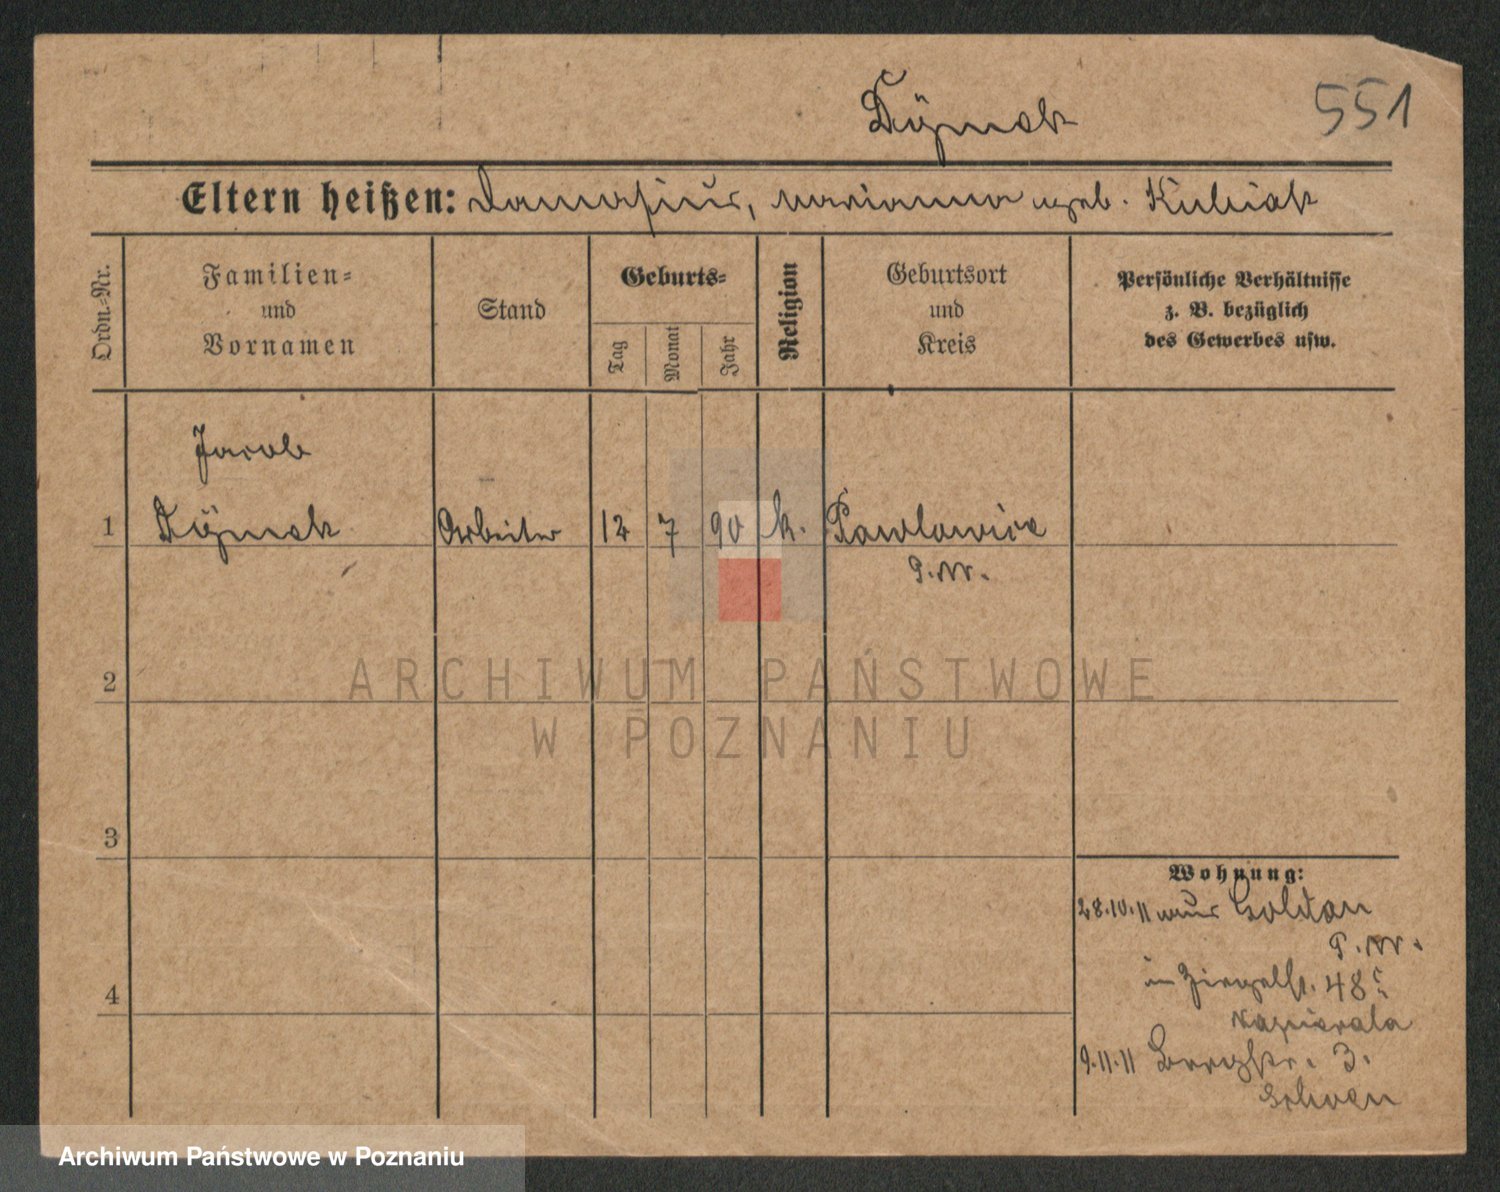 Dÿmek
551
Eltern heißen: Damasius, Marianna geb. Kubiak
Ordn.=Nr.
Familien=
und
Vornamen
Stand
Geburts=
Tag
Monat
Jahr
Religion
Geburtsort
und
Kreis
Persönliche Verhältnisse
z. B. bezüglich
des Gewerbes usw.
Jacob
1 Dÿmek Arbeiter 12 7 90 k. Pawlowice
P.W.
2
ARCHIWUM PAŃSTWOWE
W POZNANIU
3
Wohnung:
28.10.11 aus Goldau
P.W.
in Ziegelst. 48
4
Kapierala
9.11.11 Bergstr. 3.
Archiwum Państwowe w Poznaniu